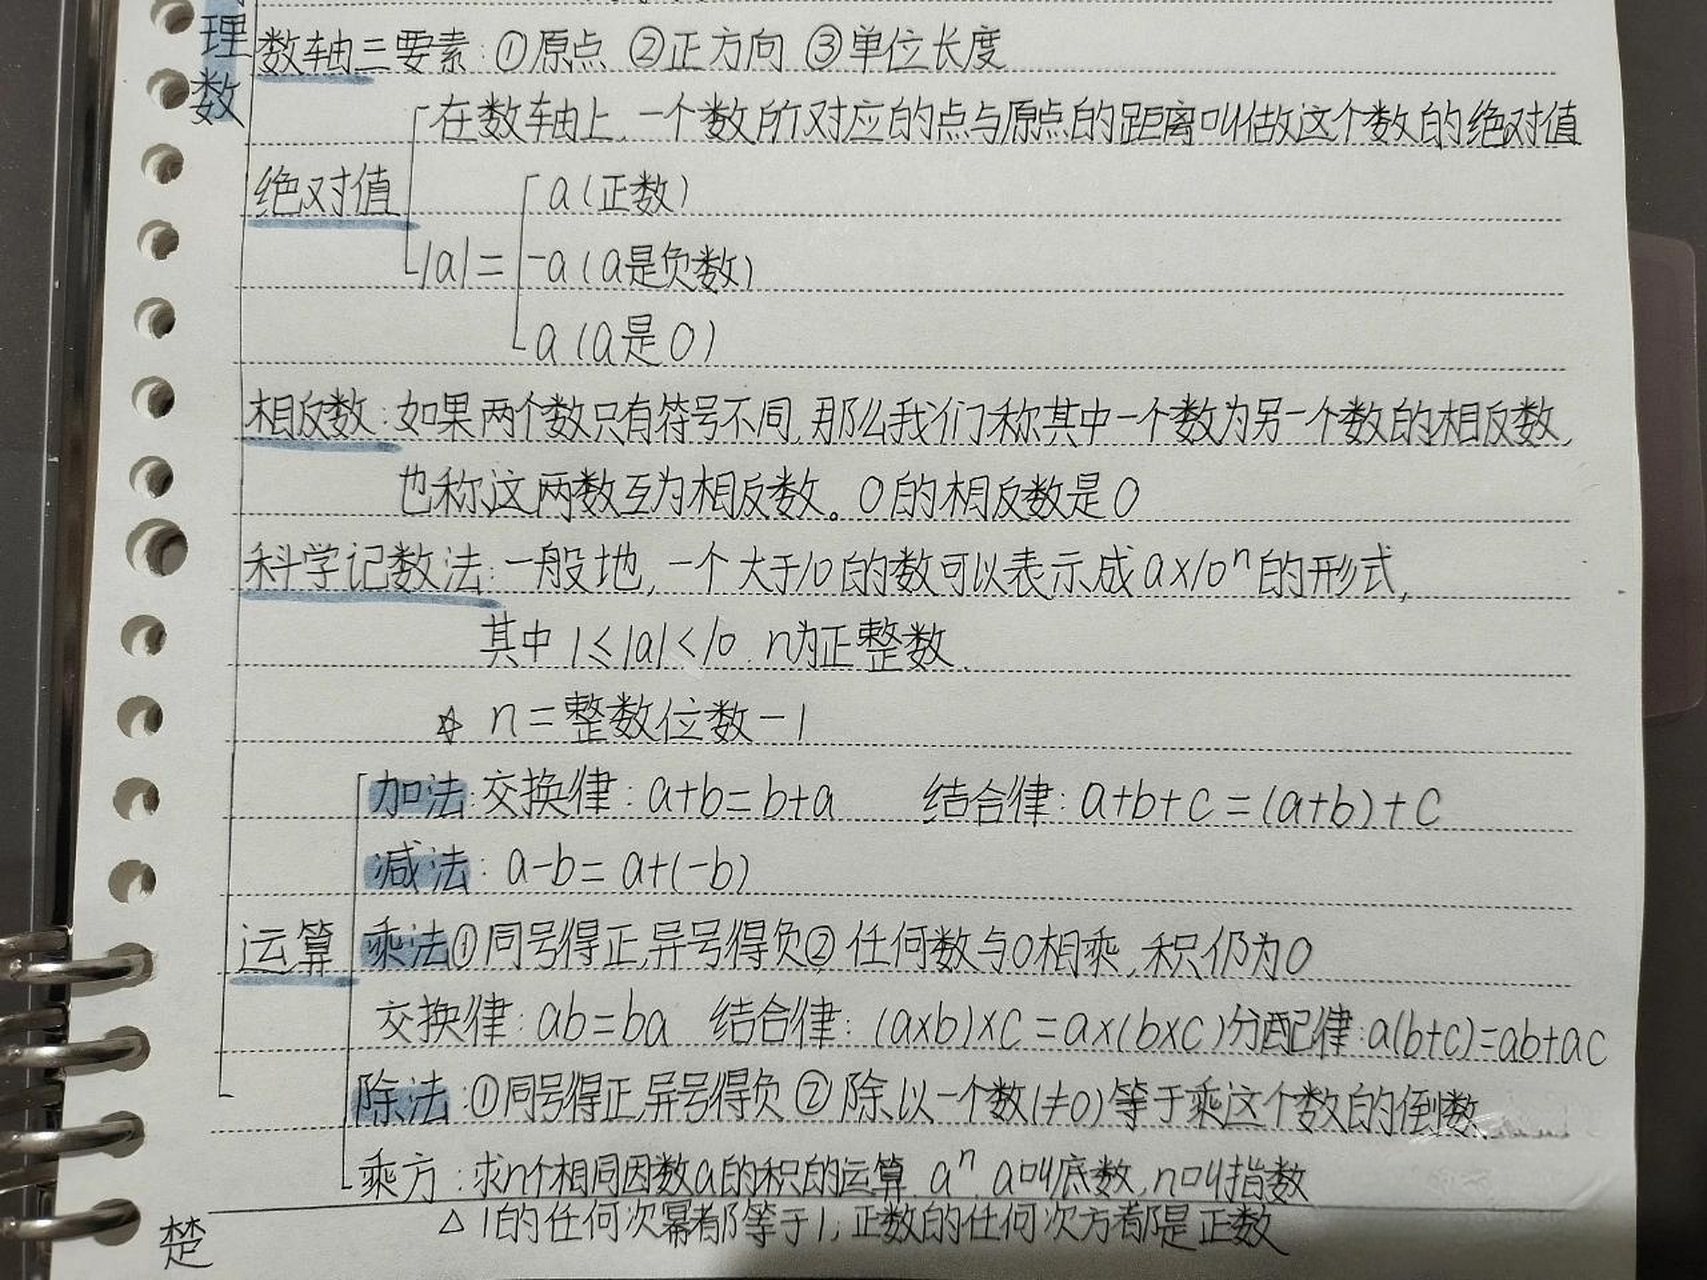 理数
数轴三要素：①原点 ②正方向 ③单位长度
在数轴上，一个数所对应的点与原点的距离叫做这个数的绝对值
绝对值
a（正数）
|a|= -a（a是负数）
a（a是0）
相反数：如果两个数只有符号不同，那么我们称其中一个数为另一个数的相反数，
也称这两数互为相反数。0的相反数是0
科学记数法：一般地，一个大于10的数可以表示成a×10ⁿ的形式，
其中1≤|a|<10. n为正整数.
☆ n=整数位数-1
加法：交换律：a+b=b+a 结合律：a+b+c=(a+b)+c
减法：a-b=a+(-b)
运算 乘法①同号得正，异号得负② 任何数与0相乘，积仍为0
交换律：ab=ba 结合律：(a×b)×c=a×(b×c) 分配律：a(b+c)=ab+ac
除法：①同号得正，异号得负 ②除以一个数(≠0)等于乘这个数的倒数
乘方：求n个相同因数a的积的运算. aⁿ. a叫底数，n叫指数
△ 1的任何次幂都等于1；正数的任何次方都是正数
楚